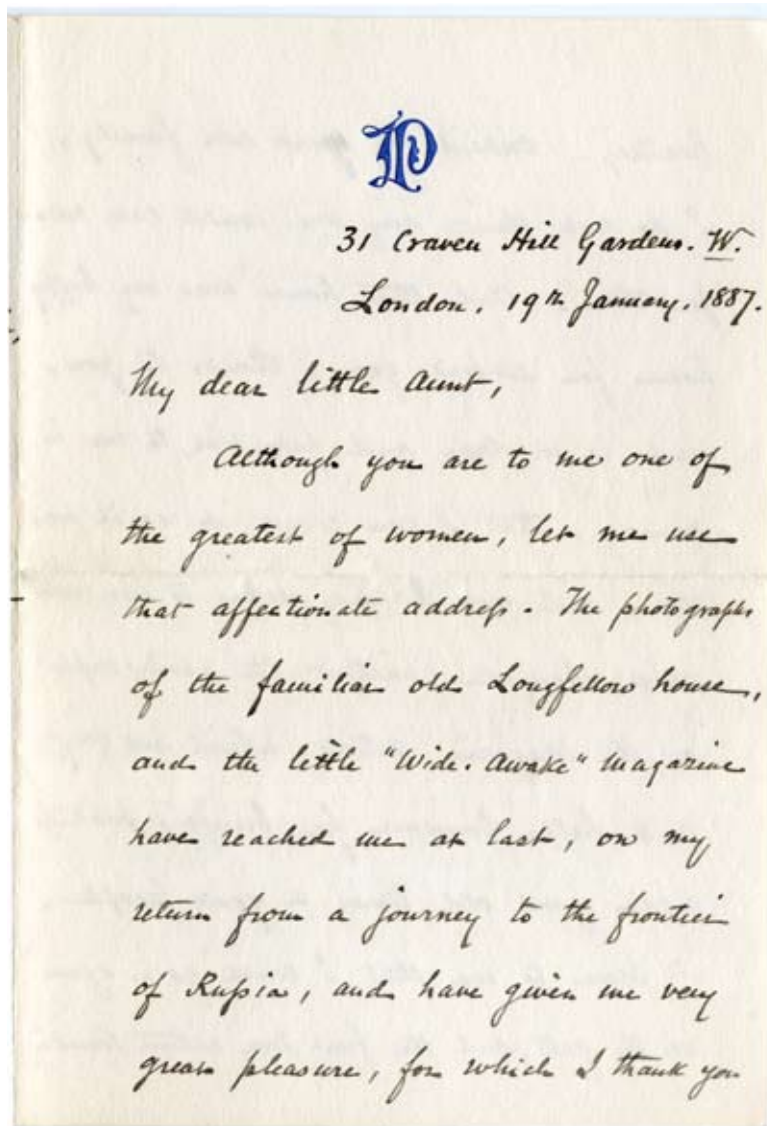 31 Craven Hill Gardens. W.
London. 19th January. 1887.
My dear little Aunt,
Although you are to me one of
the greatest of women, let me use
that affectionate address. The photographs
of the familiar old Longfellow house,
and the little "Wide. Awake" magazine
have reached me at last, on my
return from a journey to the frontier
of Russia, and have given me very
great pleasure, for which I thank you